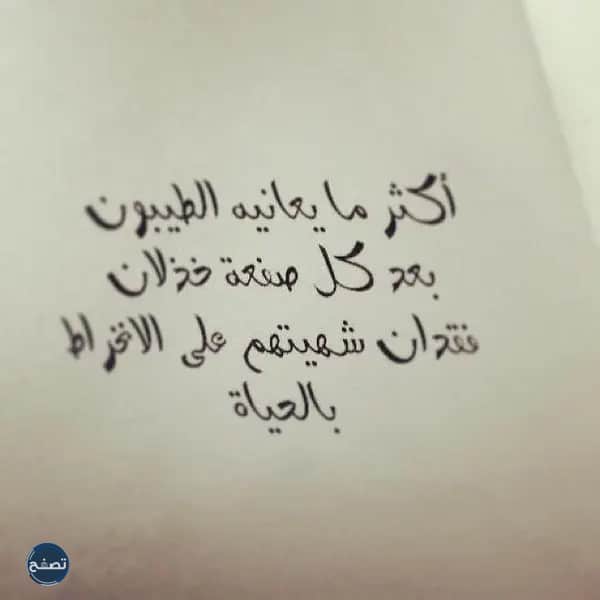 أكثر ما يعانيه الطيبون
بعد كل صفعة خذلان
فقدان شهيتهم على الانخراط
بالحياة
تصفح